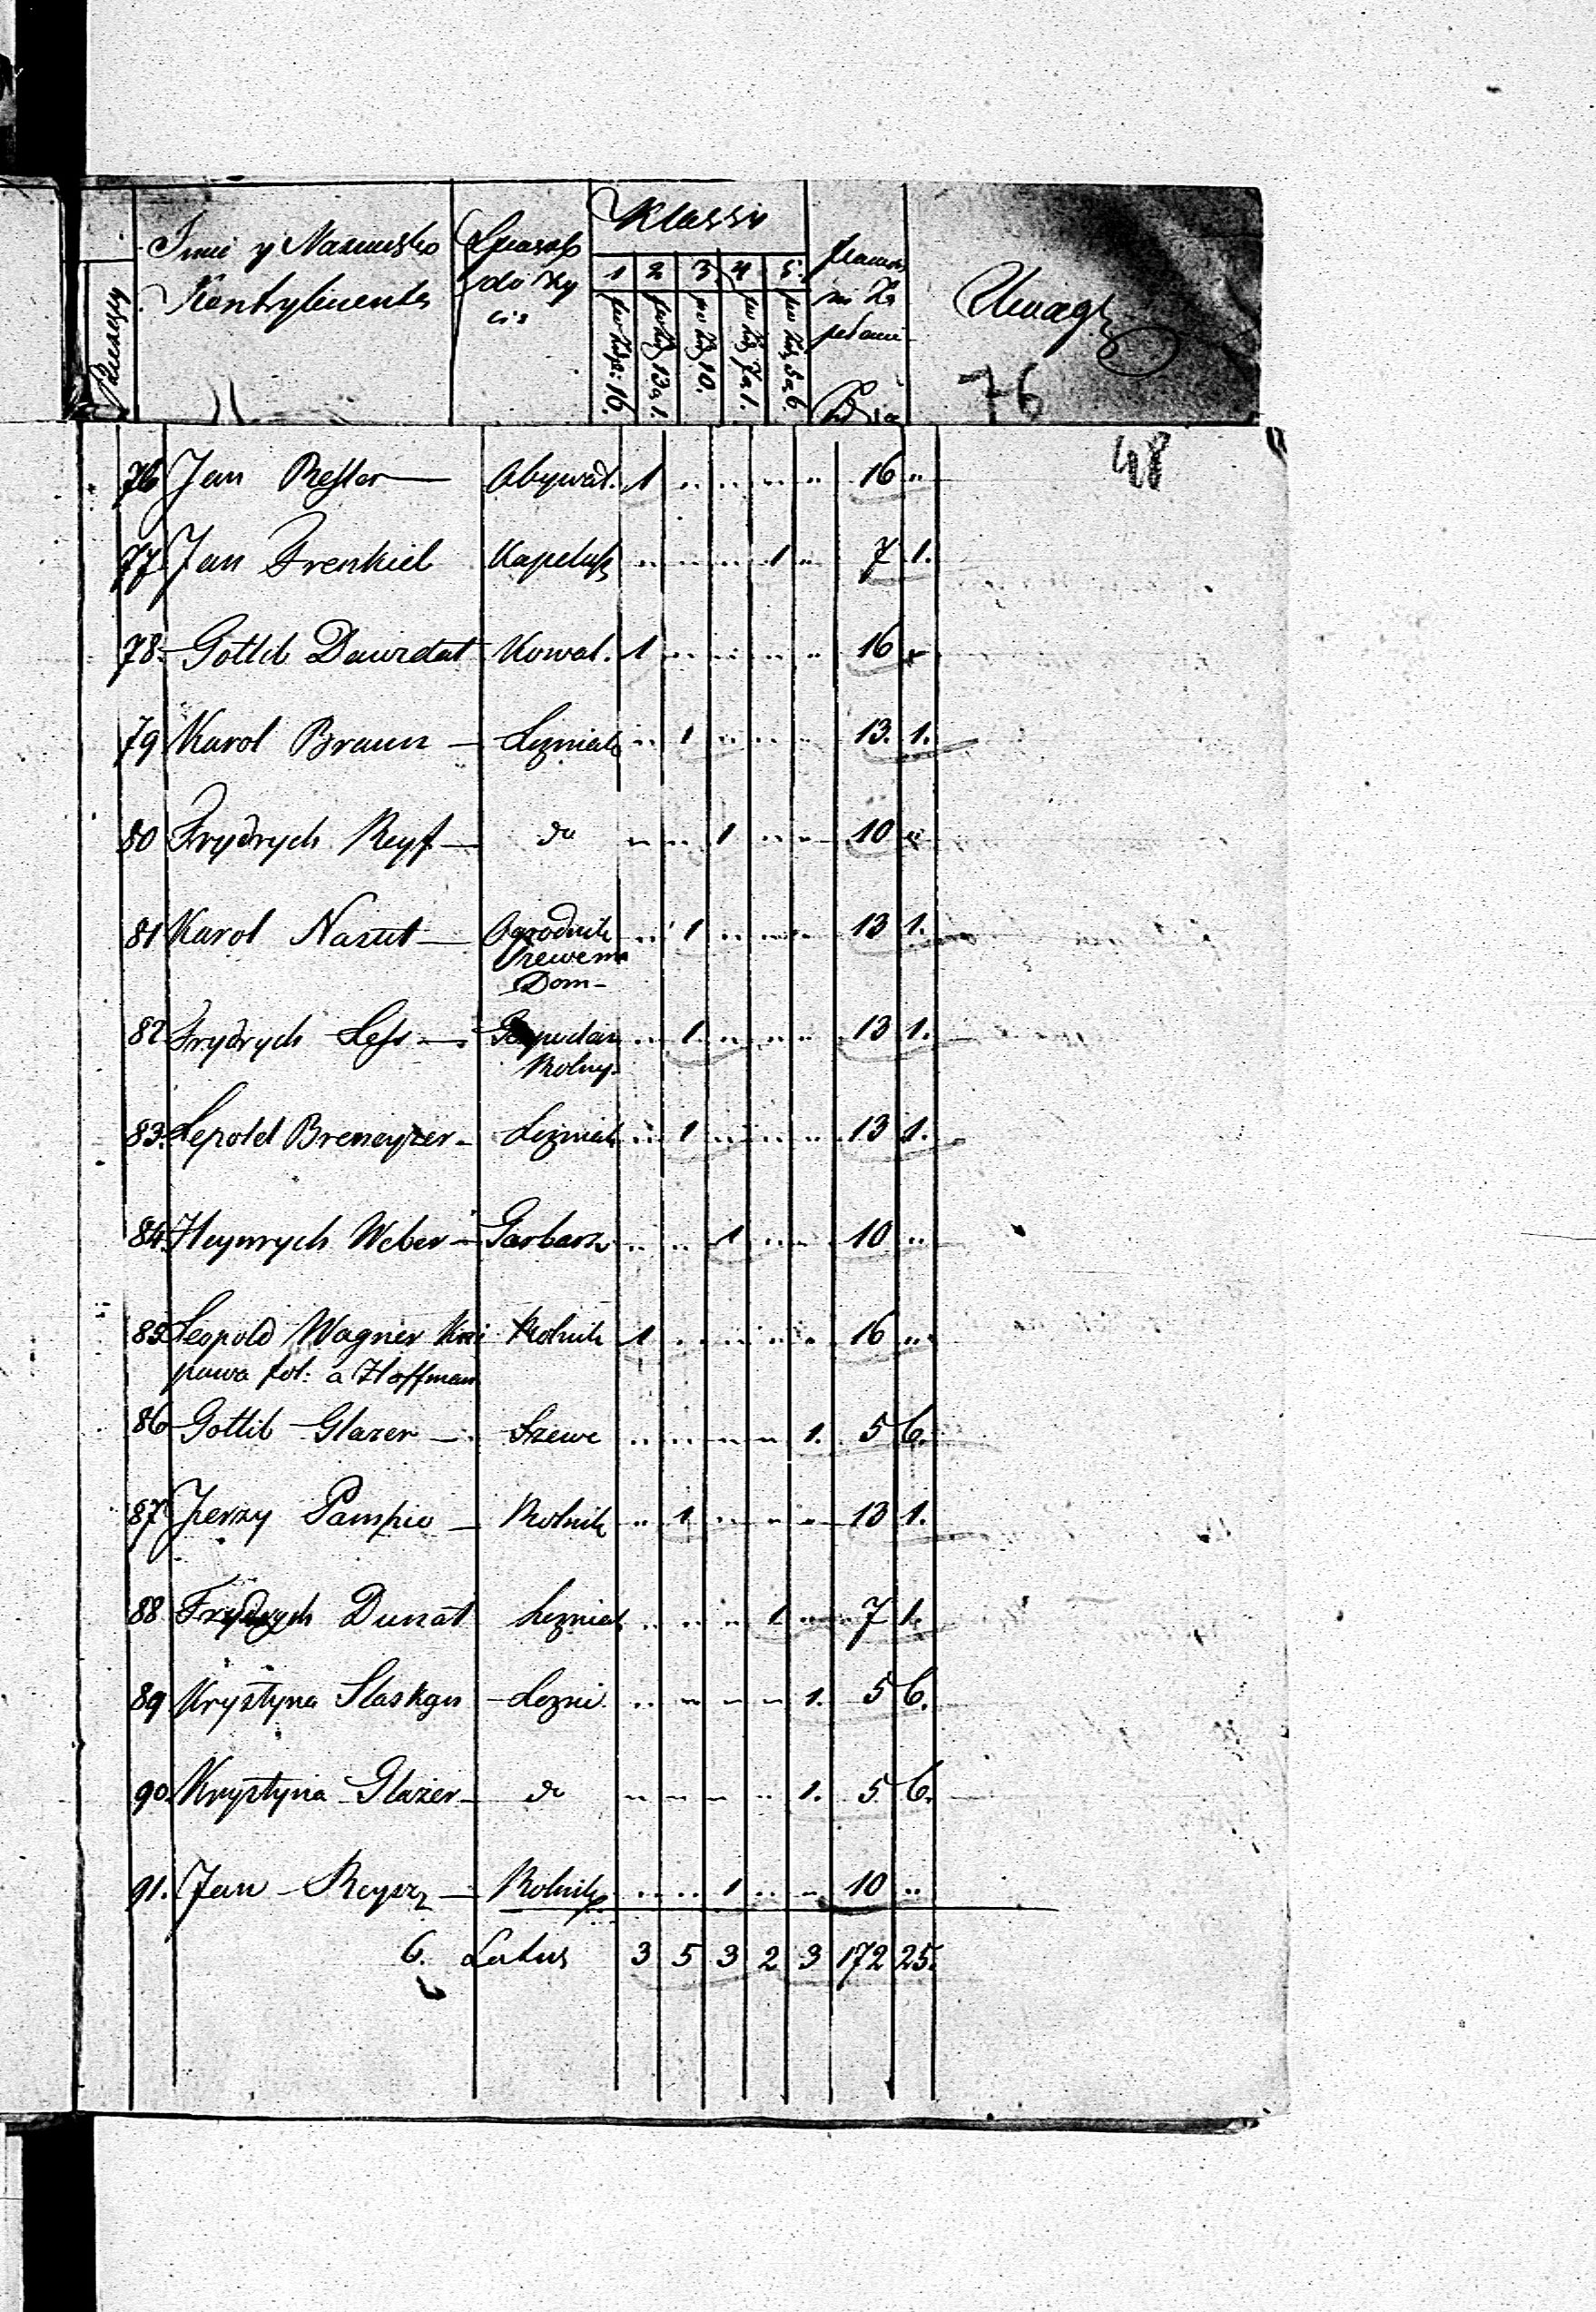 Klassy
Imie y Nazwisko Sposob 1 2 3 4 5
Kontrybuenta do Ży Uwagi
cia
po Złp: 16. po Złp 13 g 1. po Złp 10. po Złp 7 g 1. po Złp 5 g 6.
76
48
76 Jan Resler Obywat. 1 .. .. .. .. 16 ..
77 Jan Frenkiel Kapelusz .. .. .. 1 .. 7 1.
78. Gottlib Dawidat Kowal. 1 .. .. .. .. 16
79 Karol Braun Lezniak .. 1 .. .. .. 13. 1.
80 Frydrych Reyf do .. .. 1 .. .. 10 ..
81 Karol Nazut Ogrodnik .. 1 .. .. .. 13 1.
Dom
82 Frydrych Less Gospodar .. 1 .. .. .. 13 1.
Rolny
83. Lepold Breneyzer Lezniak .. 1 .. .. .. 13 1.
84. Heynrych Weber Garbarz .. .. 1 .. .. 10 ..
85 Leopold Wagner Rolnik 1 .. .. .. .. 16 ..
a Hoffman
86 Gottlib Glazer Szewc .. .. .. .. 1. 5 6.
87 Jerzy Rolnik .. 1 .. .. .. 13 1.
88 Frydrych Dunat Lezniak .. .. .. 1 .. 7 1.
89 Krystyna Lezni. .. .. .. .. 1. 5 6.
90. Krystyna Glazer do .. .. .. .. 1. 5 6.
91. Jan Reysz Rolnik .. .. 1 .. .. 10 ..
6. Latus 3 5 3 2 3 172 25.